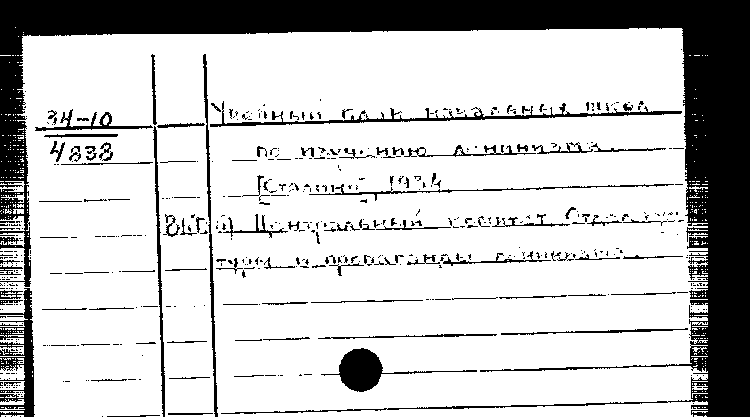 34-10
4838
Учебный план начальных школ
по изучению ленинизма.
[Сталино], 1934.
ВКП(б) Центральный комитет Отдел куль
туры и пропаганды ленинизма.